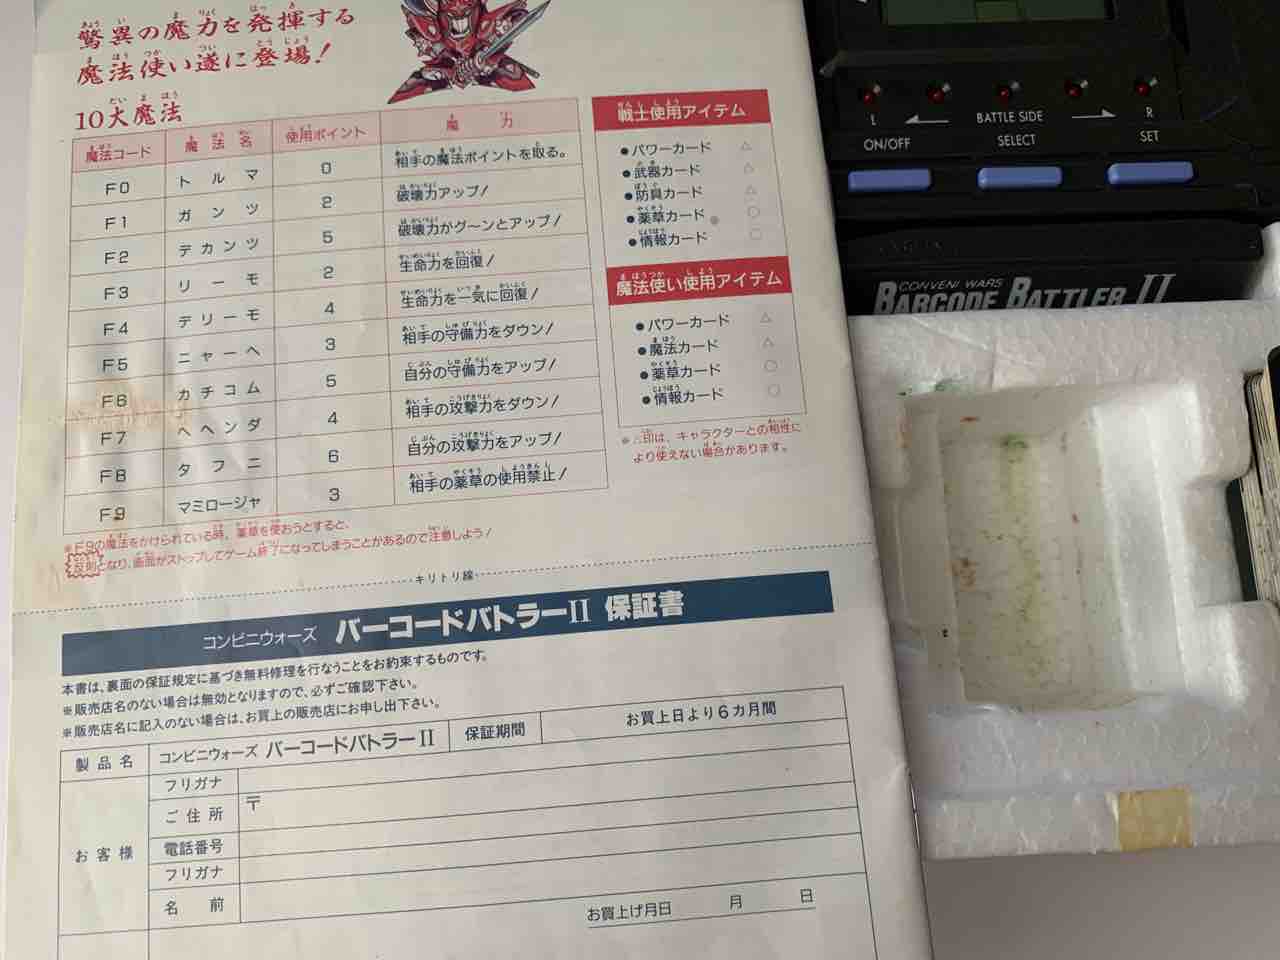 驚異の魔力を発揮する
魔法使い遂に登場!
10大魔法
魔法コード 魔法名 使用ポイント 魔力
F0 トルマ 0 相手の魔法ポイントを取る。
F1 ガンツ 2 破壊力アップ!
F2 デカンツ 5 破壊力がグーンとアップ!
F3 リーモ 2 生命力を回復!
F4 デリーモ 4 生命力を一気に回復!
F5 ニャーヘ 3 相手の守備力をダウン!
F6 カチコム 5 自分の守備力をアップ!
F7 ヘヘンダ 4 相手の攻撃力をダウン!
F8 タフニ 6 自分の攻撃力をアップ!
F9 マミロージャ 3 相手の薬草の使用禁止!
※F9の魔法をかけられている時、薬草を使おうとすると、
反則となり、画面がストップしてゲーム終了になってしまうことがあるので注意しよう!
戦士使用アイテム
●パワーカード △
●武器カード △
●防具カード △
●薬草カード ○
●情報カード ○
魔法使い使用アイテム
●パワーカード △
●魔法カード △
●薬草カード ○
●情報カード ○
※△印は、キャラクターとの相性に
より使えない場合があります。
キリトリ線
コンビニウォーズ バーコードバトラーII 保証書
本書は、裏面の保証規定に基づき無料修理を行なうことをお約束するものです。
※販売店名のない場合は無効となりますので、必ずご確認下さい。
※販売店名に記入のない場合は、お買上の販売店にお申し出下さい。
製品名 コンビニウォーズ バーコードバトラーII 保証期間 お買上日より6カ月間
お客様
フリガナ
ご住所 〒
電話番号
フリガナ
名前
お買上げ月日 月 日
L ← BATTLE SIDE → R
ON/OFF SELECT SET
CONVENI WARS
BARCODE BATTLER II